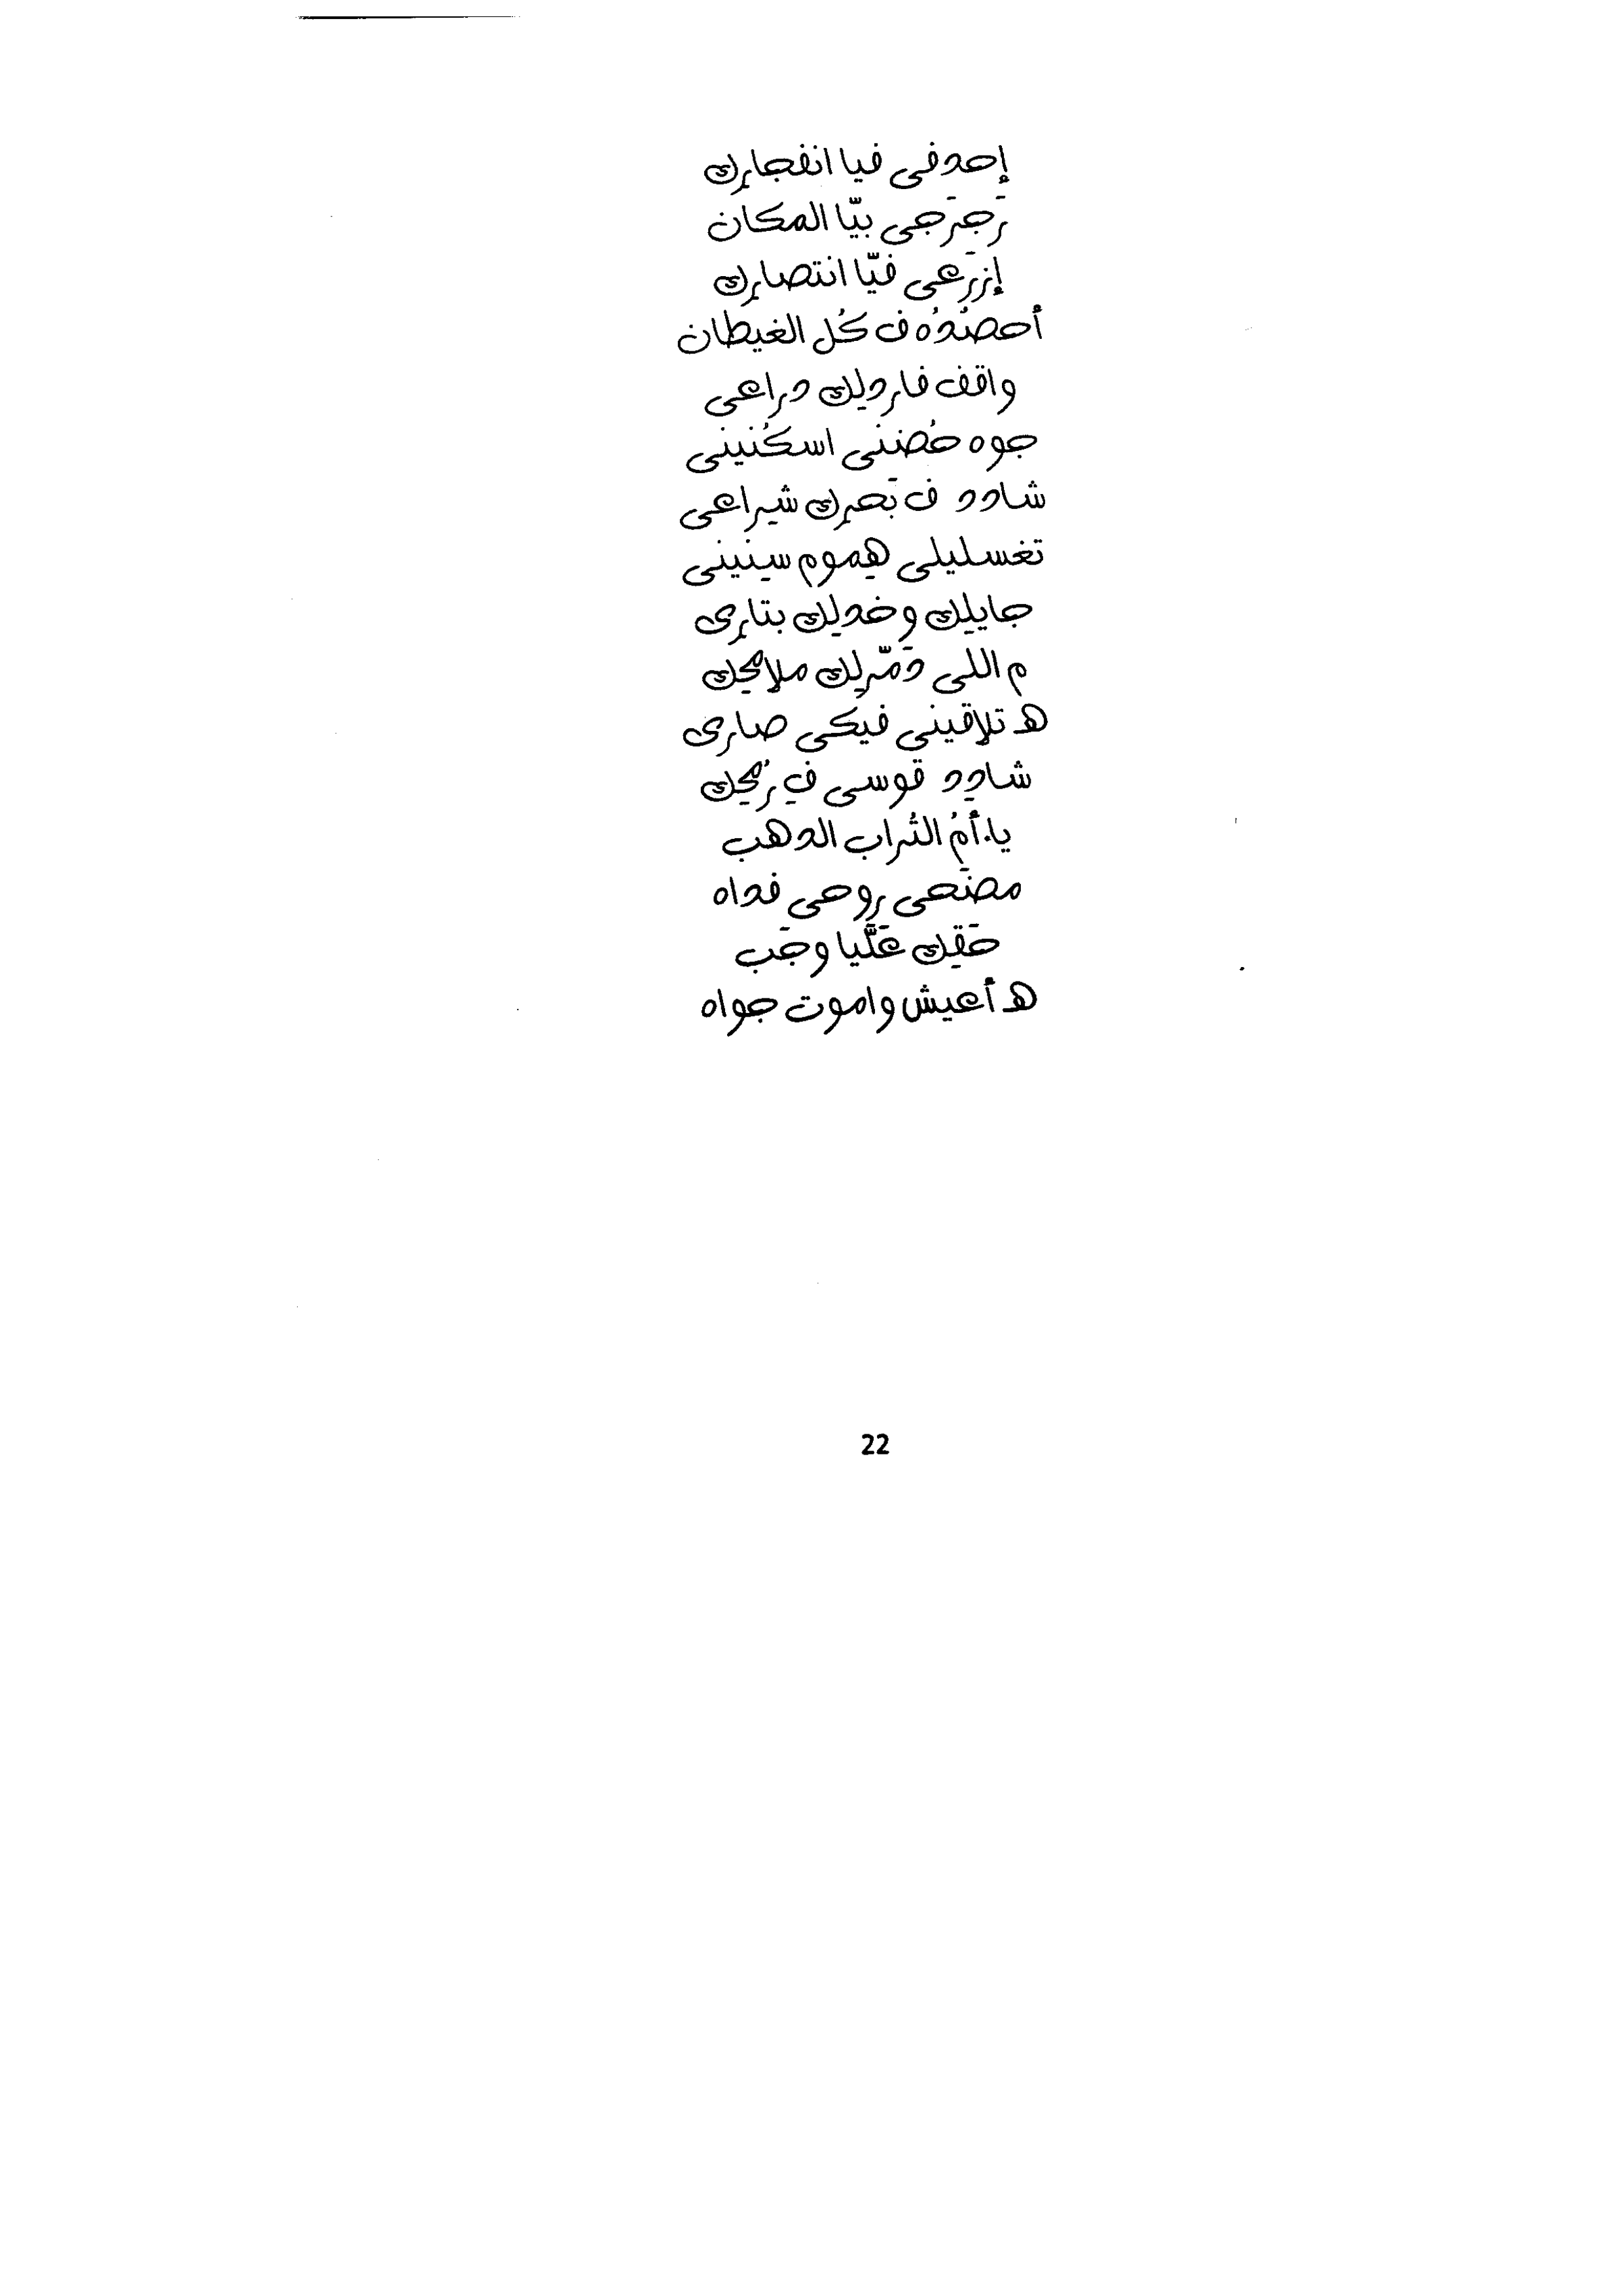 إحدفى فيا انفجارك
رَجرَجى بيّا المكان
إزرَعى فيّا انتصارك
أحصُدُه ف كُل الغيطان
واقف فارديلك دراعى
جوه حُضننى اسكُنينى
شادد ف بَحرك شيراعى
تغسليلى هِموم سِنينى
جايلِك وخدلِك بتارى
م اللى دَمّرلِك ملامحِك
هـ تلاقينى فيكى صارى
شادِد قوسى فِ رُمحِك
يا. أمُ التُراب الدهب
مضَحى روحى فداه
حَقِك عَلَّيا وجَب
هـ أعيش واموت جواه
22